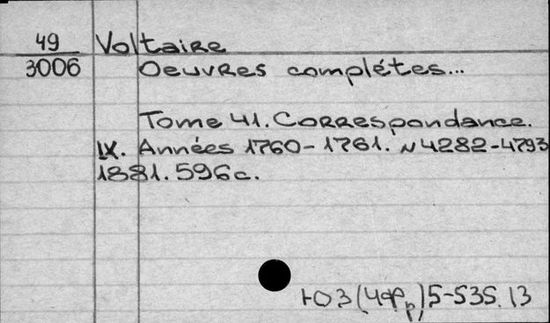 49 Voltaire
3006 Oeuvres complétes...
Tome 41. Correspondance.
IX. Années 1760-1761. N4282-4793
1881. 596c.
Ю3(4Фр)5-535.13